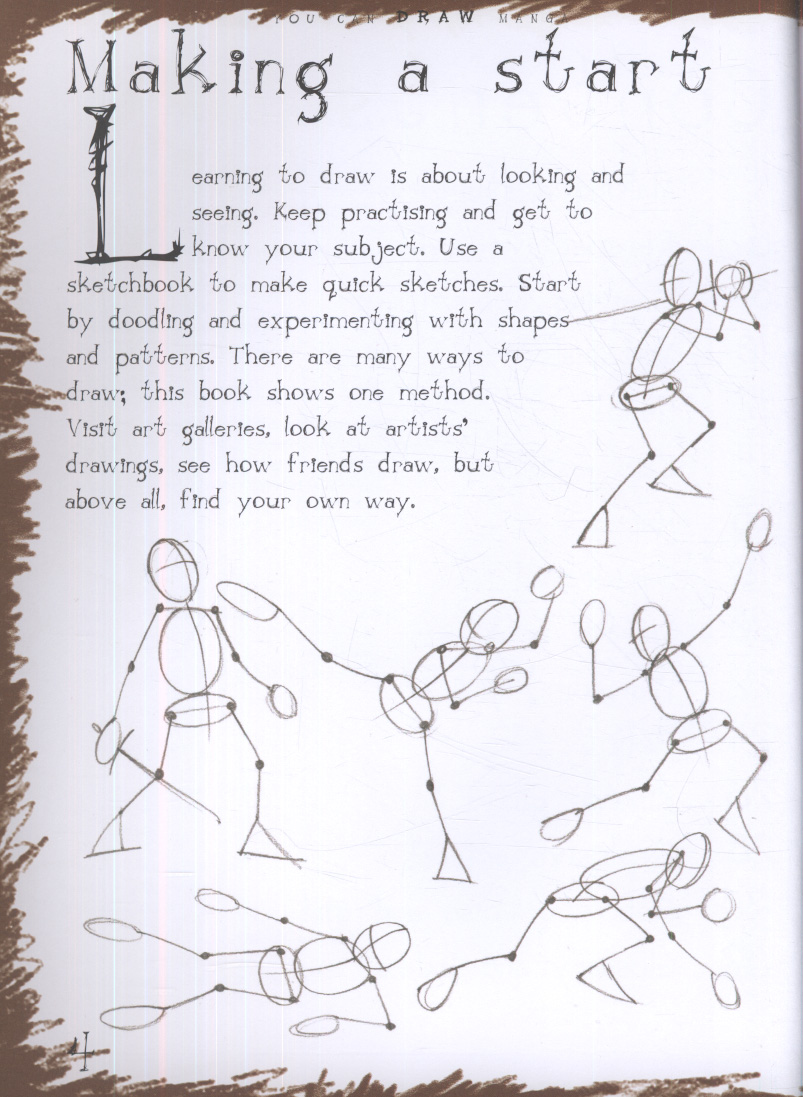 YOU CAN DRAW MANGA
Making a start
Learning to draw is about looking and
seeing. Keep practising and get to
know your subject. Use a
sketchbook to make quick sketches. Start
by doodling and experimenting with shapes
and patterns. There are many ways to
draw; this book shows one method.
Visit art galleries, look at artists'
drawings, see how friends draw, but
above all, find your own way.
4